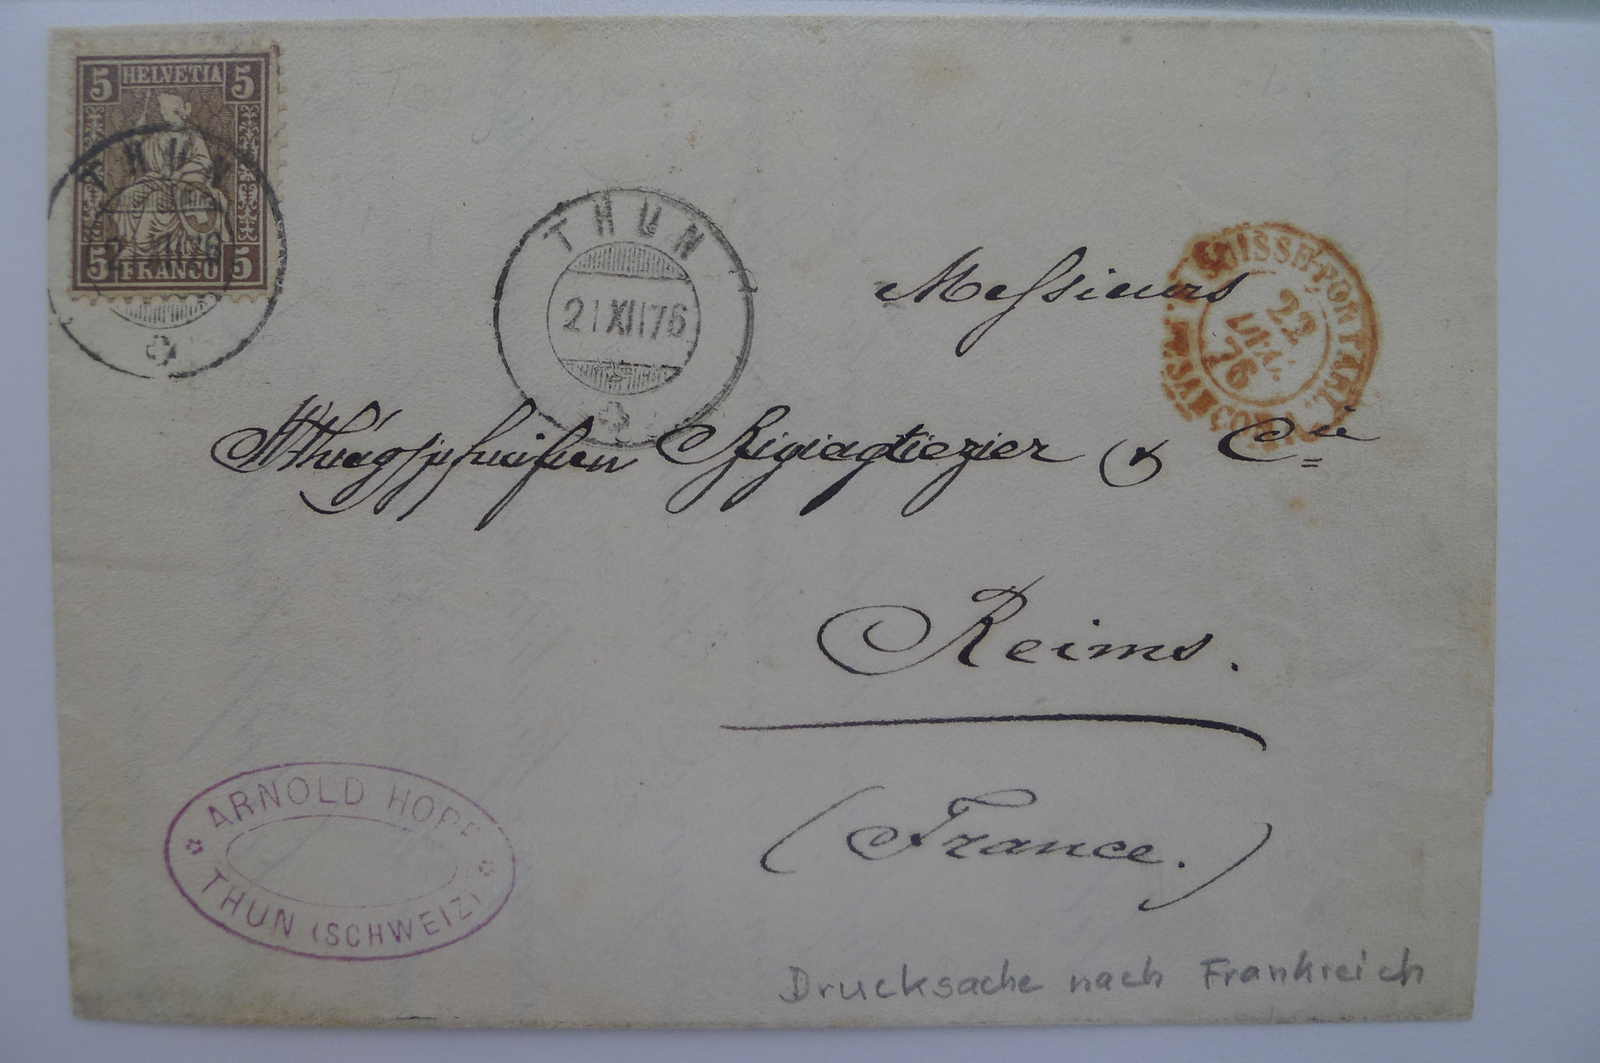 5 HELVETIA 5
5 FRANCO 5
THUN
THUN
21 XII 76
SUISSE-PONTARL.
22
DEC.
76
Messieurs
& Cie
Reims.
(France.)
ARNOLD HOPF
THUN (SCHWEIZ)
Drucksache nach Frankreich